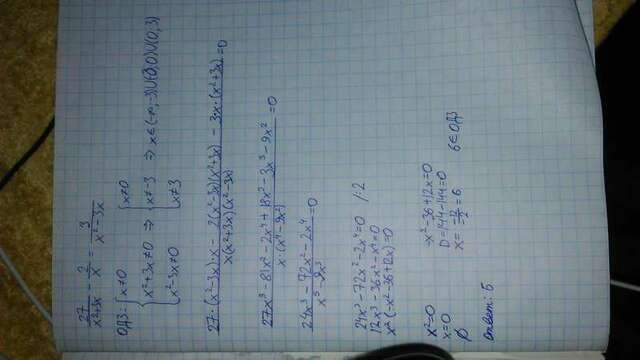 27/(x²+3x) - 2/x = 3/(x² - 3x)
ОДЗ: { x≠0 x²+3x≠0 x²-3x≠0 ⇒ { x≠0 x≠-3 x≠3 ⇒ x∈(-∞,-3)∪(-3,0)∪(0,3)
(27·(x²-3x)·x - 2(x²-3x)(x²+3x) - 3·x·(x²+3x))/(x(x²+3x)(x²-3x)) =0
(27x³-81x²-2x⁴+18x²-3x³-9x²)/(x·(x⁴-9x²)) =0
(24x³-72x²-2x⁴)/(x⁵-9x³) =0
24x³-72x²-2x⁴=0 /:2
12x³-36x²-x⁴=0
x²(-x²-36+12x)=0
x²=0 -x²-36+12x=0
x=0 D=144-144=0
∅ x= -12/-2 =6 6∈ОДЗ
Ответ: 6